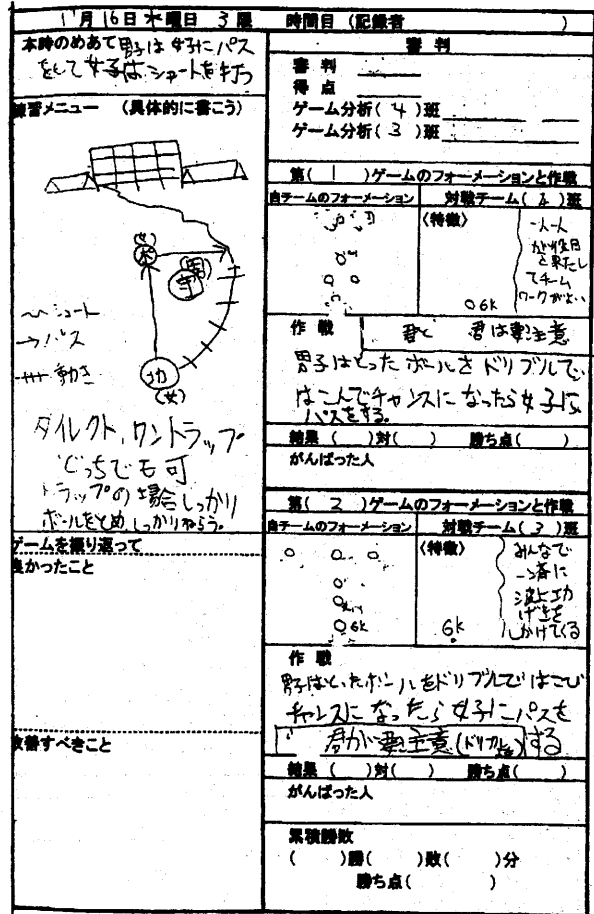 11月16日水曜日 3限 時間目(記録者 )
本時のめあて男子は女子にパス
をして女子はシュートを打つ
練習メニュー (具体的に書こう)
(女)
ポ
(男)
守
功
(女)
シュート
→パス
動き
ダイレクト、ワントラップ
どっちでも可
トラップの場合しっかり
ボールをとめ、しっかりねらう。
ゲームを振り返って
良かったこと
改善すべきこと
審判
審判
得点
ゲーム分析(4)班
ゲーム分析(3)班
第(1)ゲームのフォーメーションと作戦
自チームのフォーメーション
対戦チーム( )班
〈特徴〉
一人一人
が役目
を果たし
てチーム
ワークがよい
GK
作戦
君と 君は要注意
男子はとったボールをドリブルで
はこんでチャンスになったら女子に
パスをする。
結果( )対( ) 勝ち点( )
がんばった人
第(2)ゲームのフォーメーションと作戦
自チームのフォーメーション
対戦チーム(3)班
〈特徴〉
みんなで
一斉に
波上功
げきを
しかけてくる
GK
GK
作戦
男子はとったボールをドリブルではこび
チャンスになったら女子にパスを
する
君が要注意
結果( )対( ) 勝ち点( )
がんばった人
累積勝敗
( )勝( )敗( )分
勝ち点( )